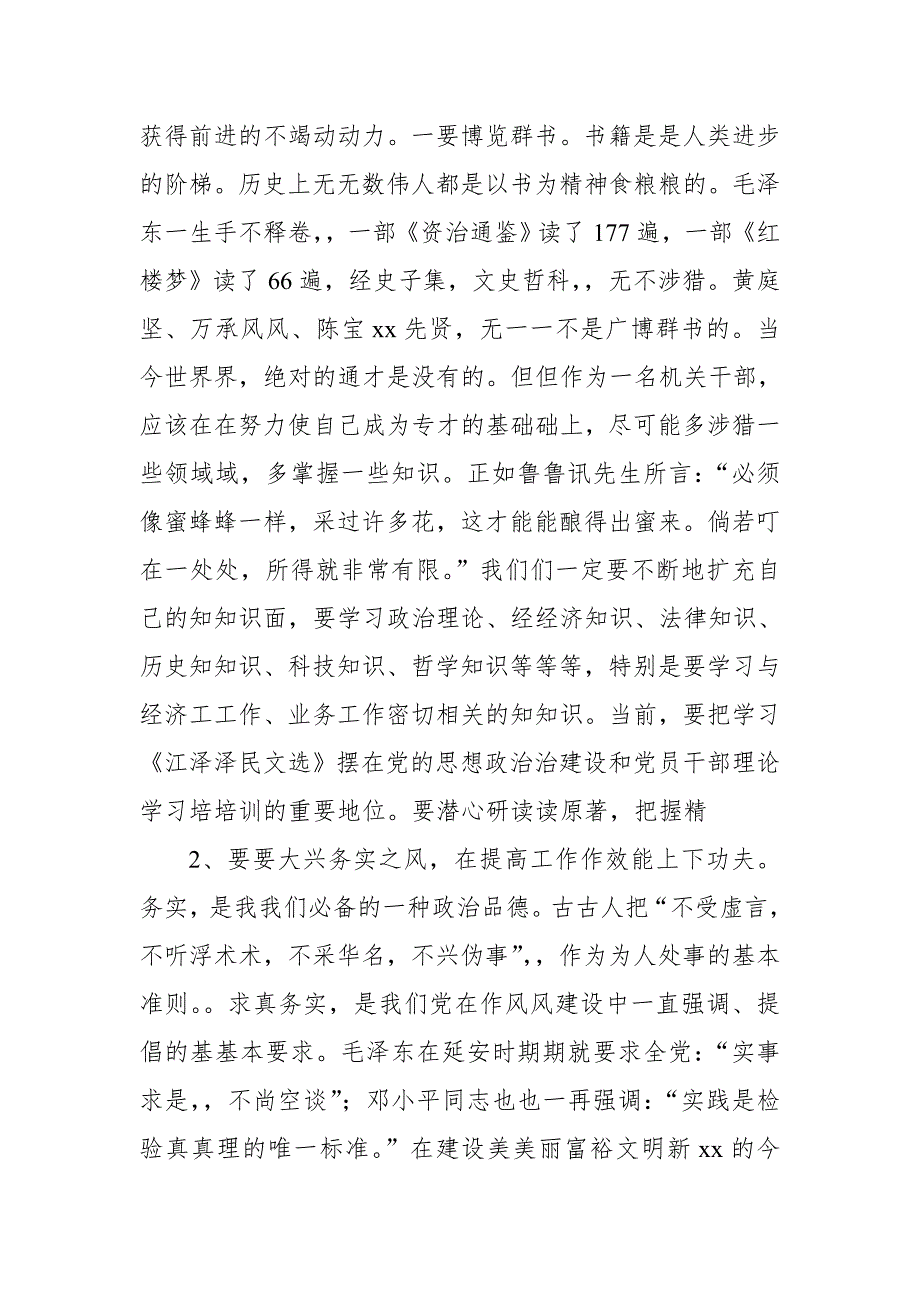 获得前进的不竭动动力。一要博览群书。书籍是是人类进步
的阶梯。历史上无无数伟人都是以书为精神食粮粮的。毛泽
东一生手不释卷，，一部《资治通鉴》读了 177 遍，一部《红
楼梦》读了 66 遍，经史子集，文史哲科，，无不涉猎。黄庭
坚、万承风风、陈宝 xx 先贤，无一一不是广博群书的。当
今世界界，绝对的通才是没有的。但但作为一名机关干部，
应该在在努力使自己成为专才的基础础上，尽可能多涉猎一
些领域域，多掌握一些知识。正如鲁鲁讯先生所言：“必须
像蜜蜂蜂一样，采过许多花，这才能能酿得出蜜来。倘若叮
在一处处，所得就非常有限。”我们们一定要不断地扩充自
己的知知识面，要学习政治理论、经经济知识、法律知识、
历史知知识、科技知识、哲学知识等等等，特别是要学习与
经济工工作、业务工作密切相关的知知识。当前，要把学习
《江泽泽民文选》摆在党的思想政治治建设和党员干部理论
学习培培训的重要地位。要潜心研读读原著，把握精
2、要要大兴务实之风，在提高工作作效能上下功夫。
务实，是我我们必备的一种政治品德。古古人把“不受虚言，
不听浮术术，不采华名，不兴伪事”，，作为为人处事的基本
准则。。求真务实，是我们党在作风风建设中一直强调、提
倡的基基本要求。毛泽东在延安时期期就要求全党：“实事
求是，，不尚空谈”；邓小平同志也也一再强调：“实践是检
验真真理的唯一标准。”在建设美美丽富裕文明新 xx 的今